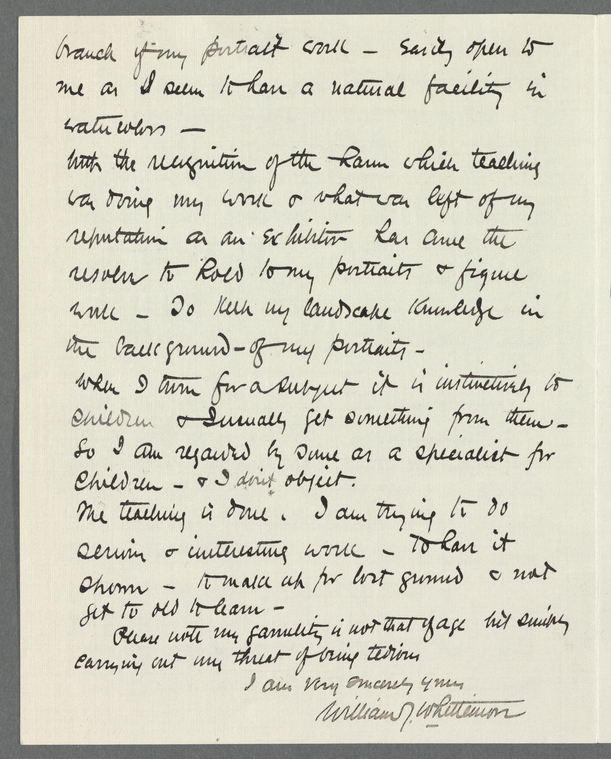 branch of my portrait work — Easily open to
me as I seem to have a natural facility in
watercolors —
With the recognition of the harm which teaching
was doing my work & what was left of my
reputation as an Exhibitor has come the
resolve to hold to my portraits & figure
work — To keep my landscape knowledge in
the background — of my portraits —
When I turn for a subject it is instinctively to
Children & I usually get something from them —
So I am regarded by some as a specialist for
Children — & I don't object.
The teaching is done. I am trying to do
serious & interesting work — to have it
shown — to make up for lost ground & not
get to old to learn —
Please note my garrulity is not that of age but simply
carrying out my threat of being tedious
I am very sincerely yours
William J. Whittemore